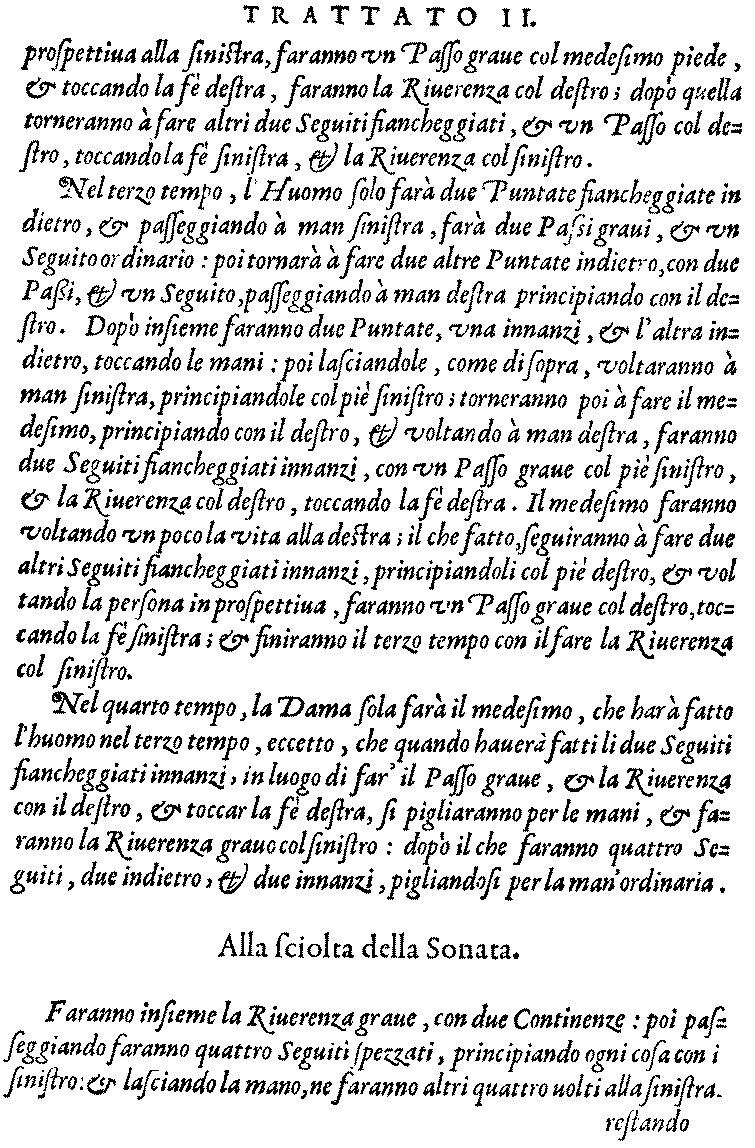 TRATTATO II.
proſpettiua alla ſiniſtra, faranno vn Paſſo graue col medeſimo piede,
& toccando la fè deſtra, faranno la Riuerenza col deſtro; dopò quella
torneranno à fare altri due Seguiti fiancheggiati, & vn Paſſo col de=
ſtro, toccando la fè ſiniſtra, & la Riuerenza col ſiniſtro.
Nel terzo tempo, l'Huomo ſolo farà due Puntate fiancheggiate in
dietro, & paſſeggiando à man ſiniſtra, farà due Paſsi graui, & vn
Seguito ordinario: poi tornarà à fare due altre Puntate indietro, con due
Paſsi, & vn Seguito, paſſeggiando à man deſtra principiando con il de=
ſtro. Dopò inſieme faranno due Puntate, vna innanzi, & l'altra in=
dietro, toccando le mani: poi laſciandole, come di ſopra, voltaranno à
man ſiniſtra, principiandole col piè ſiniſtro; torneranno poi à fare il me=
deſimo, principiando con il deſtro, & voltando à man deſtra, faranno
due Seguiti fiancheggiati innanzi, con vn Paſſo graue col piè ſiniſtro,
& la Riuerenza col deſtro, toccando la fè deſtra. Il medeſimo faranno
voltando vn poco la vita alla deſtra; il che fatto, ſeguiranno à fare due
altri Seguiti fiancheggiati innanzi, principiandoli col piè deſtro, & vol
tando la perſona in proſpettiua, faranno vn Paſſo graue col deſtro, toc=
cando la fè ſiniſtra; & finiranno il terzo tempo con il fare la Riuerenza
col ſiniſtro.
Nel quarto tempo, la Dama ſola farà il medeſimo, che harà fatto
l'huomo nel terzo tempo, eccetto, che quando hauerà fatti li due Seguiti
fiancheggiati innanzi, in luogo di far' il Paſſo graue, & la Riuerenza
con il deſtro, & toccar la fè deſtra, ſi pigliaranno per le mani, & fa=
ranno la Riuerenza grauo col ſiniſtro: dopò il che faranno quattro Se=
guiti, due indietro, & due innanzi, pigliandoſi per la man' ordinaria.
Alla ſciolta della Sonata.
Faranno inſieme la Riuerenza graue, con due Continenze: poi paſ=
ſeggiando faranno quattro Seguiti ſpezzati, principiando ogni coſa con i
ſiniſtro: & laſciando la mano, ne faranno altri quattro uolti alla ſiniſtra.
reſtando